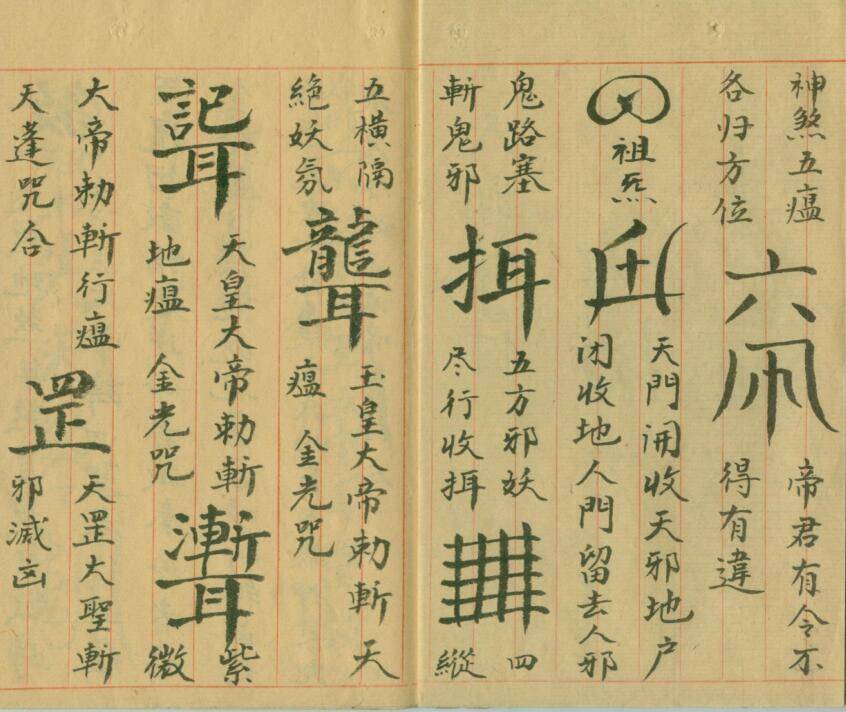 神煞五瘟
各归方位
六
帝君有令不
得有違
祖炁
天門開收天邪地户
闭收地人門留去人邪
鬼路塞
斬鬼邪
挕
五方邪妖
尽行收挕
四
縱
五橫隔
絕妖氛
聾
玉皇大帝勅斬天
瘟 金光咒
天皇大帝勅斬
地瘟 金光咒
紫
微
大帝勅斬行瘟
天蓬咒合
罡
天罡大聖斬
邪滅凶